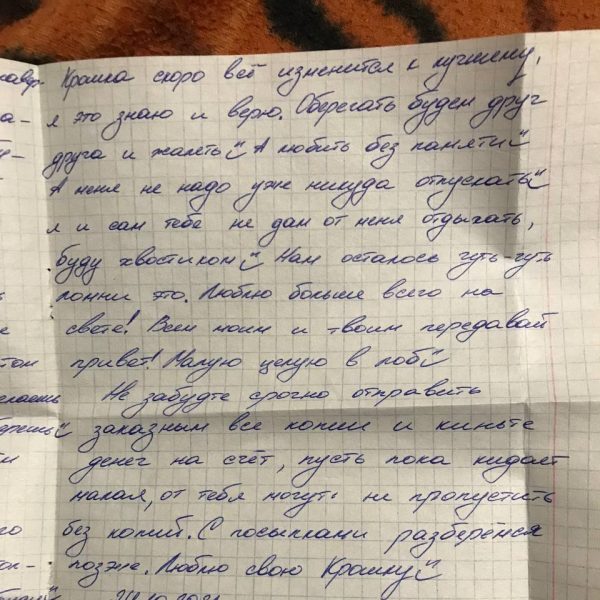 Крошка скоро всё изменится к лучшему,
я это знаю и верю. Оберегать будем друг
друга и жалеть А любить без памяти
А меня не надо уже никуда отпускать
я и сам тебе не дам от меня отдыхать,
буду хвостиком Нам осталось чуть-чуть
помни это. Люблю больше всего на
свете! Всем моим и твоим передавай
привет! Малую целую в лоб
Не забудьте срочно отправить
заказным все копии и киньте
денег на счёт, пусть пока кидает
малая, от тебя могут не пропустить
без копий. С посылками разберёмся
позже. Люблю свою Крошку